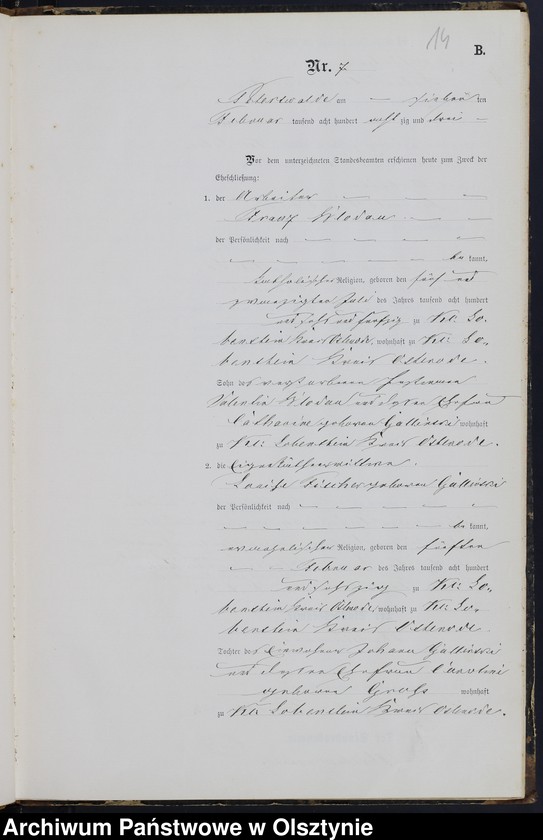 14
B.
Nr. 7
Peterswalde am — sieben ten
Februar tausend acht hundert acht zig und drei —
Vor dem unterzeichneten Standesbeamten erschienen heute zum Zweck der
Eheschließung:
1. der Arbeiter
Franz Klodau
der Persönlichkeit nach
be kannt,
katholischer Religion, geboren den fünf und
zwanzigsten Juli des Jahres tausend acht hundert
und fünfzig zu Kl: Lo-
benstein Kreis Osterode, wohnhaft zu Kl: Lo-
benstein Kreis Osterode.
Sohn des verstorbenen Instmann
Valentin Klodau und dessen Ehefrau
Catharine geborene Gallinski wohnhaft
zu Kl: Lobenstein Kreis Osterode.
2. die Eigenkäthnerwittwe
Louise Fischer geborene Gallinski
der Persönlichkeit nach
be kannt,
evangelischer Religion, geboren den fünften
Februar des Jahres tausend acht hundert
und sechszig zu Kl: Lo-
benstein Kreis Osterode, wohnhaft zu Kl: Lo-
benstein Kreis Osterode.
Tochter des Einwohner Johann Gallinski
und dessen Ehefrau Caroline
geborene Groß wohnhaft
zu Kl: Lobenstein Kreis Osterode.
Archiwum Państwowe w Olsztynie